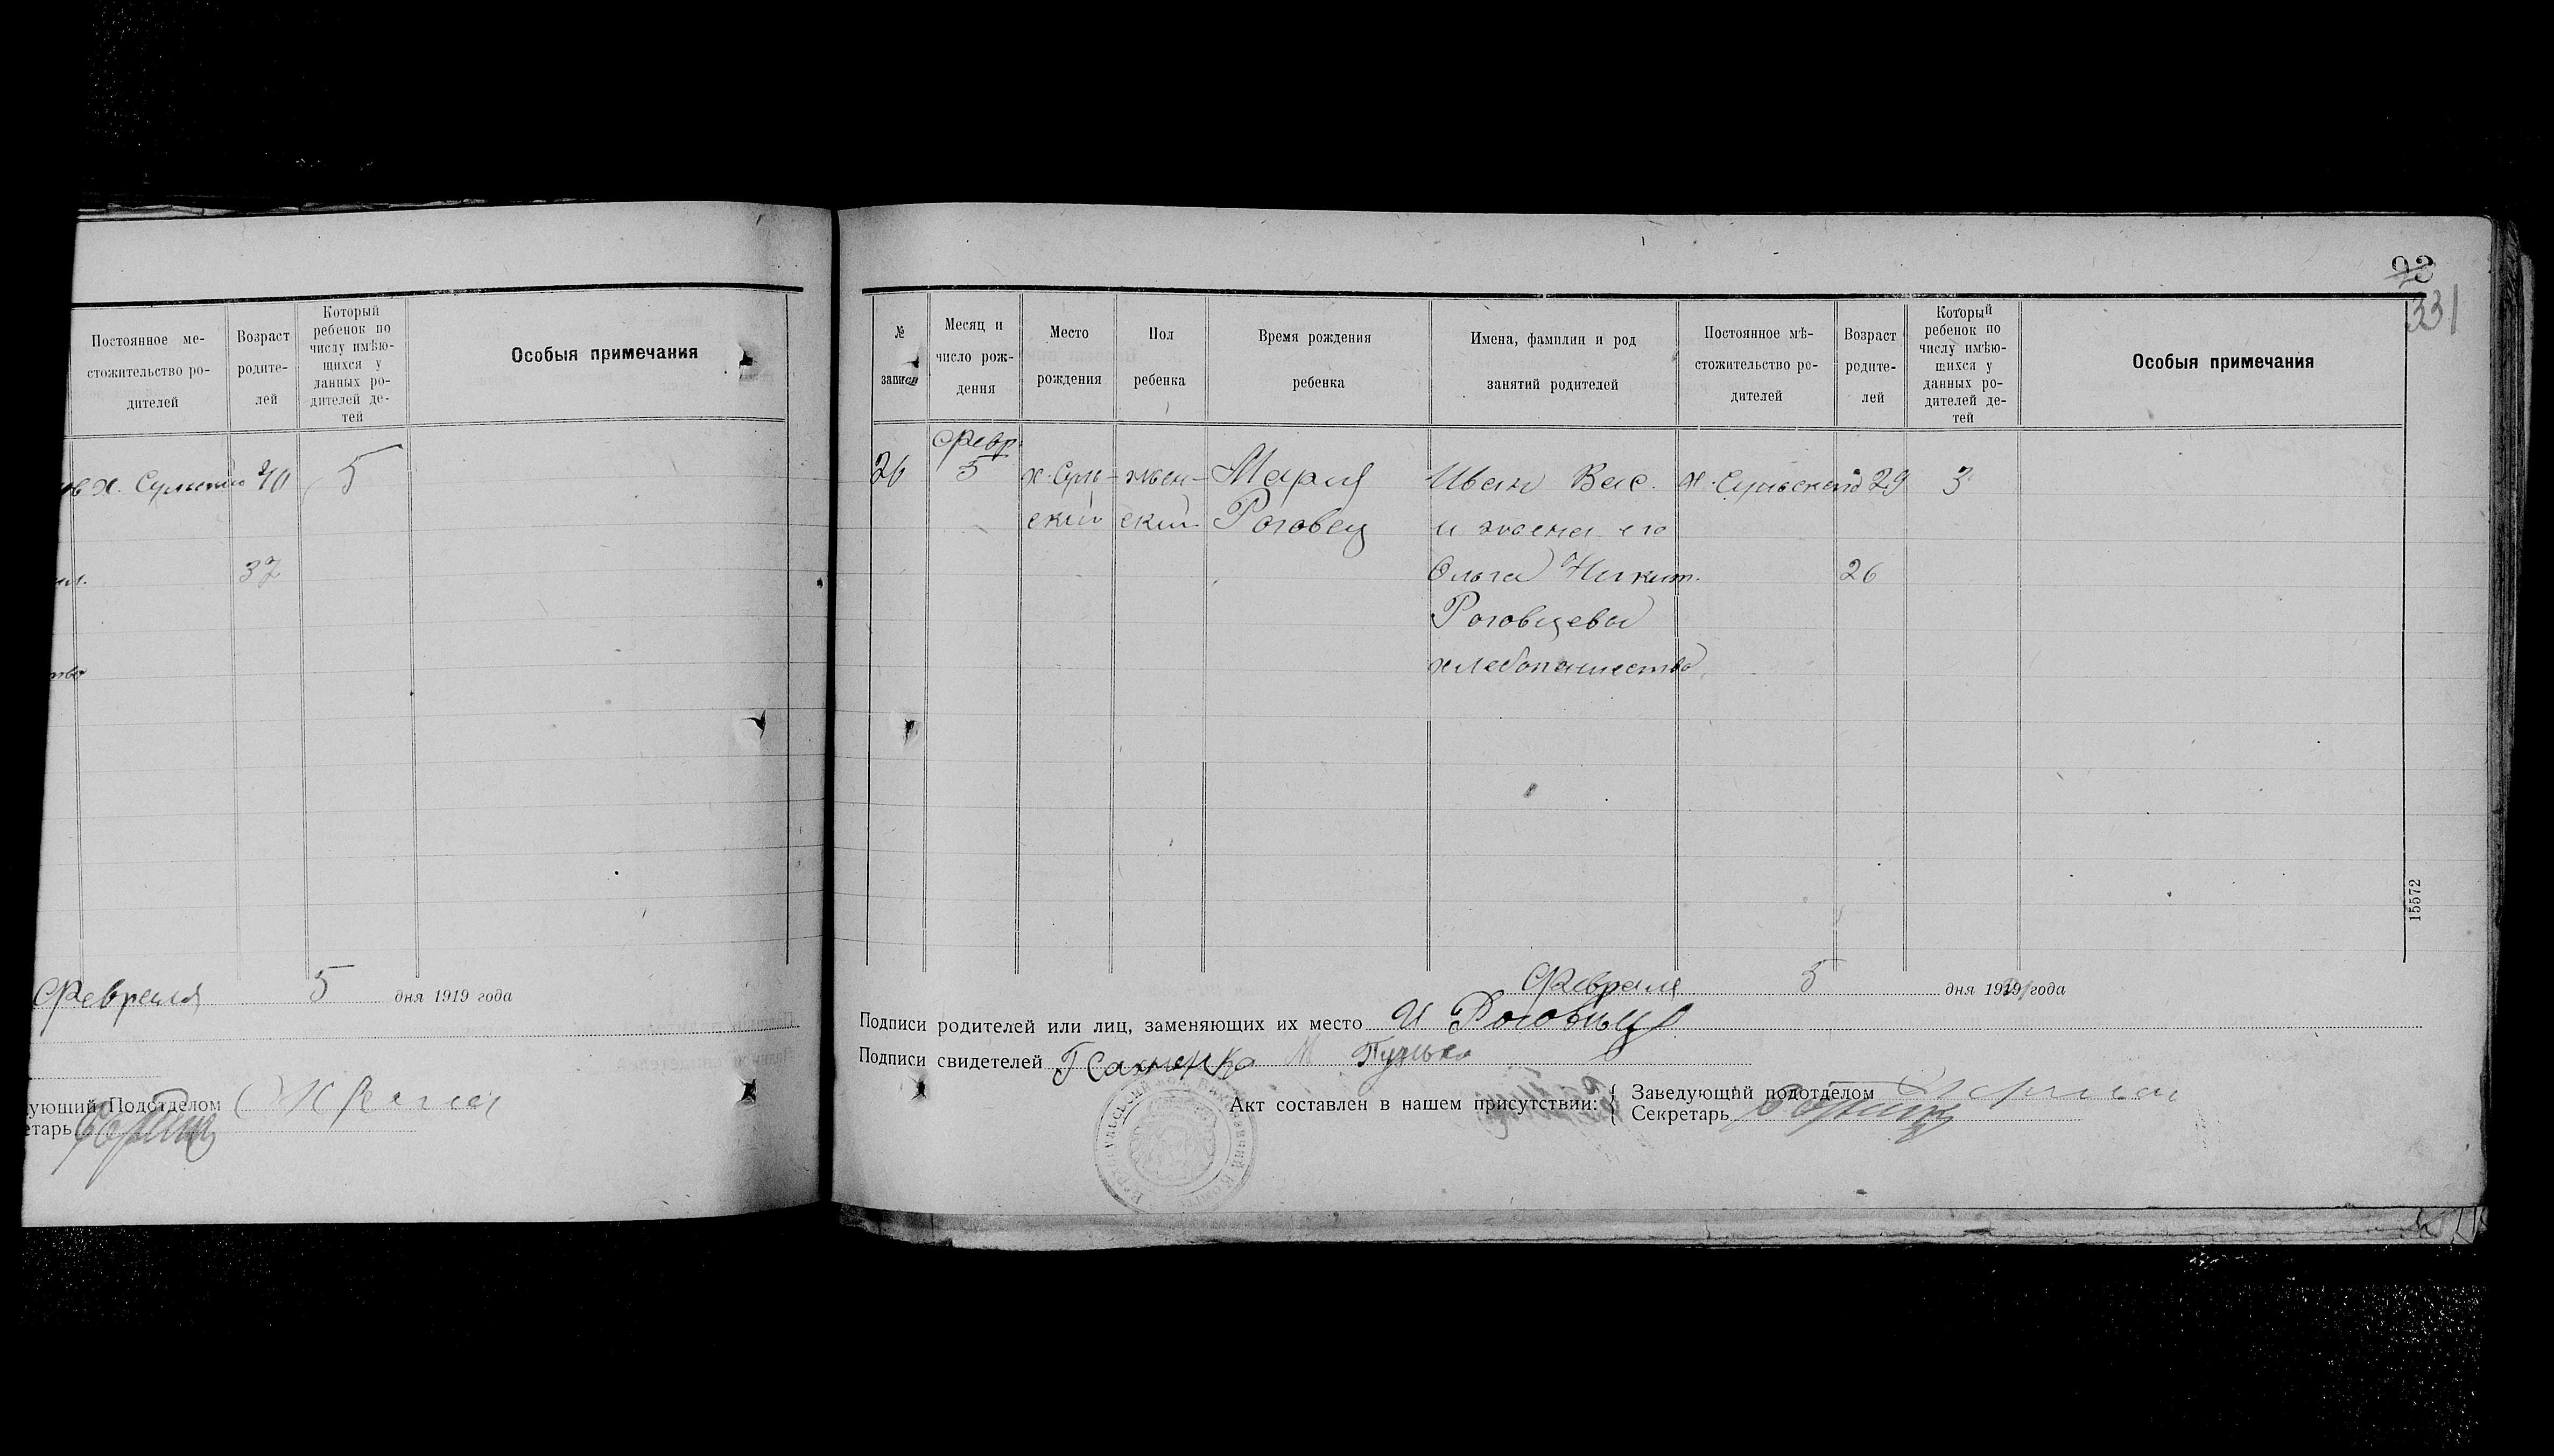 Постоянное ме-
стожительство ро-
дителей
Возраст
родите-
лей
Который
ребенок по
числу имѣю-
щихся у
данных ро-
дителей де-
тей
Особыя примечания
х. 40 5
37
Февраля 5 дня 1919 года
ующий Подотделом
етарь
93
331
№
записи
Месяц и
число рож-
дения
Место
рождения
Пол
ребенка
Время рождения
ребенка
Имена, фамилии и род
занятий родителей
Постоянное мѣ-
стожительство ро-
дителей
Возраст
родите-
лей
Который
ребенок по
числу имѣю-
щихся у
данных ро-
дителей де-
тей
Особыя примечания
Февр.
26 5 х. Суль- жен- Мария Иван Вас. х. Сульский 29 3
ский ский Роговец и жена его
Ольга Никит. 26
Роговцевы
хлебопашество
15572
Февраля 5 дня 1919 года
Подписи родителей или лиц, заменяющих их место И Роговец
Подписи свидетелей М Пузько
Акт составлен в нашем присутствии:
Заведующий подотделом
Секретарь